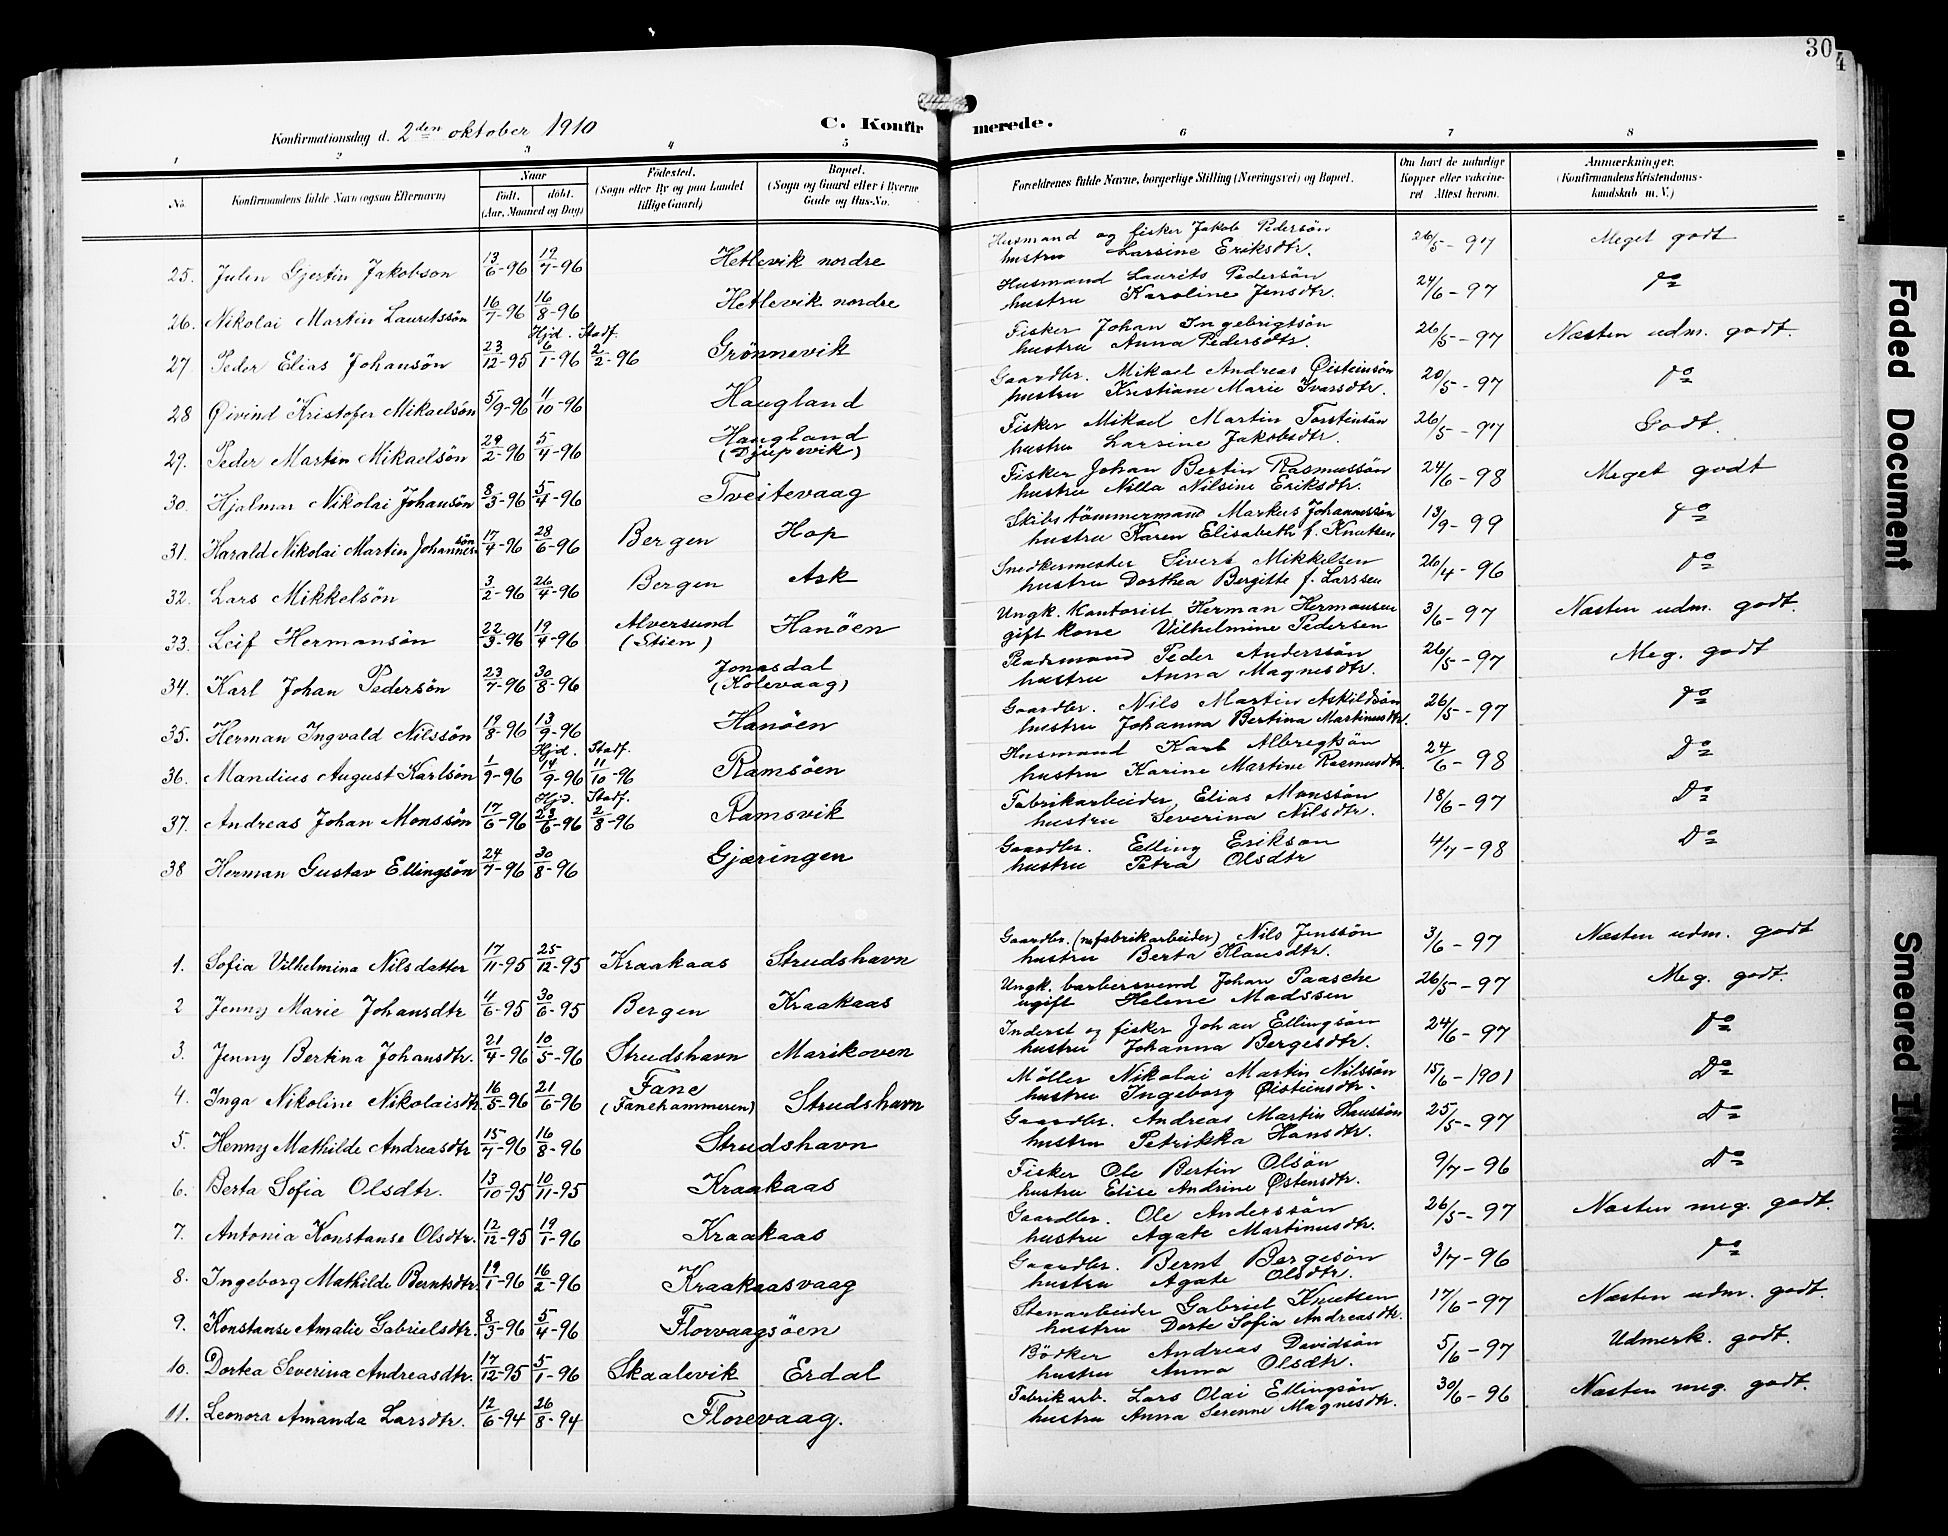 30
4
Konfirmationsdag d. 2den oktober 1910
C. Konfir merede.
1 2 3 4 5 6 7 8
No.
Konfirmandens fulde Navn (ogsaa Efternavn)
Naar
födt. döbt.
(Aar, Maaned og Dag)
Födested.
(Sogn eller By og paa Landet
tillige Gaard)
Bopæl.
(Sogn og Gaard eller i Byerne
Gade og Hus-No.
Forældrenes fulde Navne, borgerlige Stilling (Næringsvei) og Bopæl.
Om havt de naturlige
Kopper eller vakcine-
ret Attest herom.
Anmerkninger.
(Konfirmandens Kristendoms-
kundskab m. V.)
25. Julen Gjertin Jakobson 13/6-96 19/7-96 Hetlevik nordre Husmand og fisker Jakob Pedersön 26/5-97 Meget godt
hustru Larsine Eriksdtr.
26. Nikolai Martin Lauritssön 16/7-96 16/8-96 Hetlevik nordre Husmand Laurits Pedersön 24/6-97 Do
hustru Karoline Jensdtr.
Hjd. Stadf.
27 Peder Elias Johansön 23/12-95 6/1-96 2/2-96 Grönnevik Fisker Johan Ingebrigtsön 26/5-97 Næsten udm. godt
hustru Anna Pedersdtr.
28 Øivind Kristofer Mikaelsön 5/9-96 11/10-96 Haugland Gaardbr. Mikael Andreas Øisteinsön 20/5-97 Do
hustru Kristiane Marie Ivarsdtr.
29. Peder Martin Mikaelsön 29/2-96 5/4-96 Haugland Fisker Mikael Martin Torsteinsön 26/5-97 Godt.
(Djupevik) hustru Larsine Jakobsdtr.
30. Hjalmar Nikolai Johansön 8/3-96 5/4-96 Tveitevaag Fisker Johan Bertin Rasmussön 24/6-98 Meget godt
hustru Nilla Nilsine Eriksdtr.
31. Harald Nikolai Martin Johannessön 17/4-96 28/6-96 Bergen Hop Skibstömmermand Markus Johannessön 13/9-99 Do
hustru Karen Elisabeth f. Knutsen
32. Lars Mikkelsön 3/2-96 26/4-96 Bergen Ask Snedkermester Sivert Mikkelsen 26/4-96 Do
hustru Dorthea Bergitte f. Larssen
33. Leif Hermansön 22/3-96 19/4-96 Alversund Hanöen Ungk. Kontorist Herman Hermansen 3/6-97 Næsten udm. godt.
(Stien) gift kone Vilhelmine Pedersen
34. Karl Johan Pedersön 23/7-96 30/8-96 Jonasdal Pladsmand Peder Anderssön 26/5-97 Meg. godt
(Kolevaag) hustru Anna Magnesdtr.
35. Herman Ingvald Nilssön 19/8-96 13/9-96 Hanöen Gaardbr. Nils Martin Askildsön 26/5-97 Do
hustru Johanna Bertina Martinusdtr.
Hjd. Stadf.
36. Mandius August Karlsön 1/9-96 14/9-96 11/10-96 Ramsöen Husmand Karl Albregtsön 24/6-98 Do
hustru Karine Martine Rasmusdtr.
Hjd. Stadf.
37. Andreas Johan Monssön 17/6-96 23/6-96 2/8-96 Ramsvik Fabrikarbeider Elias Monssön 18/6-97 Do
hustru Severina Nilsdtr.
38 Herman Gustav Ellingsön 24/7-96 30/8-96 Gjæringen Gaardbr. Elling Erikson 4/7-98 Do
hustru Petra Olsdtr
1. Sofia Vilhelmina Nilsdatter 17/11-95 25/12-95 Kraakaas Strudshavn Gaardbr. (nu fabrikarbeider) Nils Jenssön 3/6-97 Næsten udm. godt
hustru Berta Klausdtr.
2 Jenny Marie Johansdtr 11/6-95 30/6-95 Bergen Kraakaas Ungk. barbersvend Johan Paasche 26/5-97 Meg. godt.
ugift Helene Madssen
3. Jenny Bertina Johansdtr. 21/4-96 10/5-96 Strudshavn Marikoven Inderst og fisker Johan Ellingsön 24/6-97 Do
hustru Johanna Bergesdtr.
4. Inga Nikoline Nikolaisdtr. 16/5-96 21/6-96 Fane Strudshavn Möller Nikolai Martin Nilssön 15/6-1901 Do
(Fanehammeren) hustru Ingeborg Øisteinsdtr.
5. Henny Mathilde Andreasdtr 15/7-96 16/8-96 Strudshavn Gaardbr. Andreas Martin Hanssön 25/5-97 Do
hustru Petrikka Hansdtr.
6. Berta Sofia Olsdtr. 13/10-95 10/11-95 Kraakaas Fisker Ole Bertin Olsön 9/7-96 Do
hustru Elise Andrine Østensdtr.
7. Antonia Konstanse Olsdtr. 12/12-95 19/1-96 Kraakaas Gaardbr. Ole Anderssön 26/5-97 Næsten meg. godt.
hustru Agate Martinusdtr.
8. Ingeborg Mathilde Berntsdtr. 19/1-96 16/2-96 Kraakaasvaag Gaardbr. Bernt Bergesön 3/7-96 Do
hustru Agate Olsdtr.
9. Konstanse Amalie Gabrielsdtr. 8/3-96 5/4-96 Florvaagsöen Stenarbeider Gabriel Knutsen 17/6-97 Næsten udm. godt.
hustru Dorte Sofia Andreasdtr.
10. Dortea Severina Andreasdtr. 17/12-95 5/1-96 Skaalevik Erdal Bödker Andreas Davidsön 5/6-97 Udmerk. godt.
hustru Anna Olsdtr.
11. Leonora Amanda Larsdtr. 12/6-94 26/8-94 Florevaag. Fabrikarb. Lars Olai Ellingsön 30/6-96 Næsten meg. godt.
hustru Anna Serenne Magnesdtr.
Faded Document
Smeared Ink